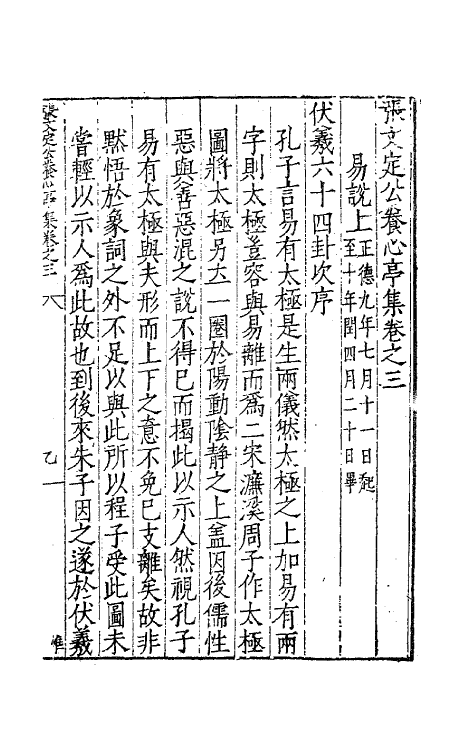 張文定公養心亭集卷之三
易說上正德九年七月十一日起至十年閏四月二十日畢
伏羲六十四卦次序
孔子言易有太極是生兩儀然太極之上加易有兩
字則太極豈容與易離而爲二宋濂溪周子作太極
圖將太極另立一圈於陽動陰静之上盖因後儒性
惡與善惡混之說不得已而揭此以示人然視孔子
易有太極與夫形而上下之意不免已支離矣故非
黙悟於象詞之外不足以與此所以程子受此圖未
嘗輕以示人爲此故也到後來朱子因之遂於伏羲
張文定公養心亭集卷之三
乙一
惟